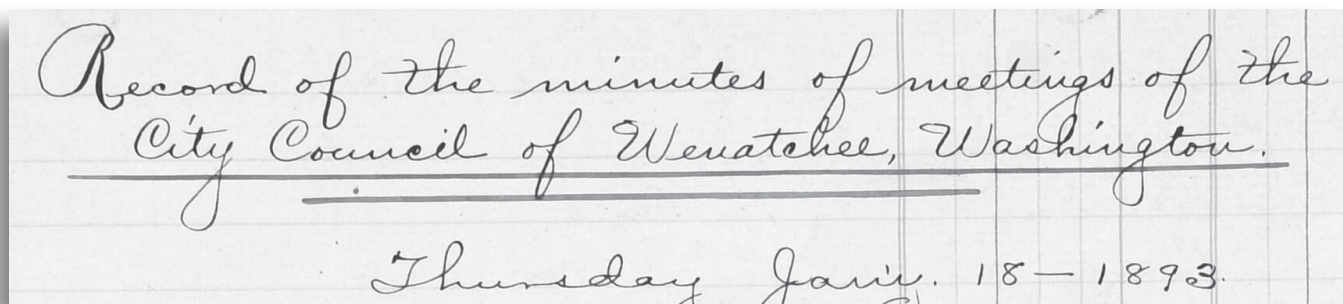 Record of the minutes of meetings of the
City Council of Wenatchee, Washington.
Thursday Jan'y. 18 — 1893.